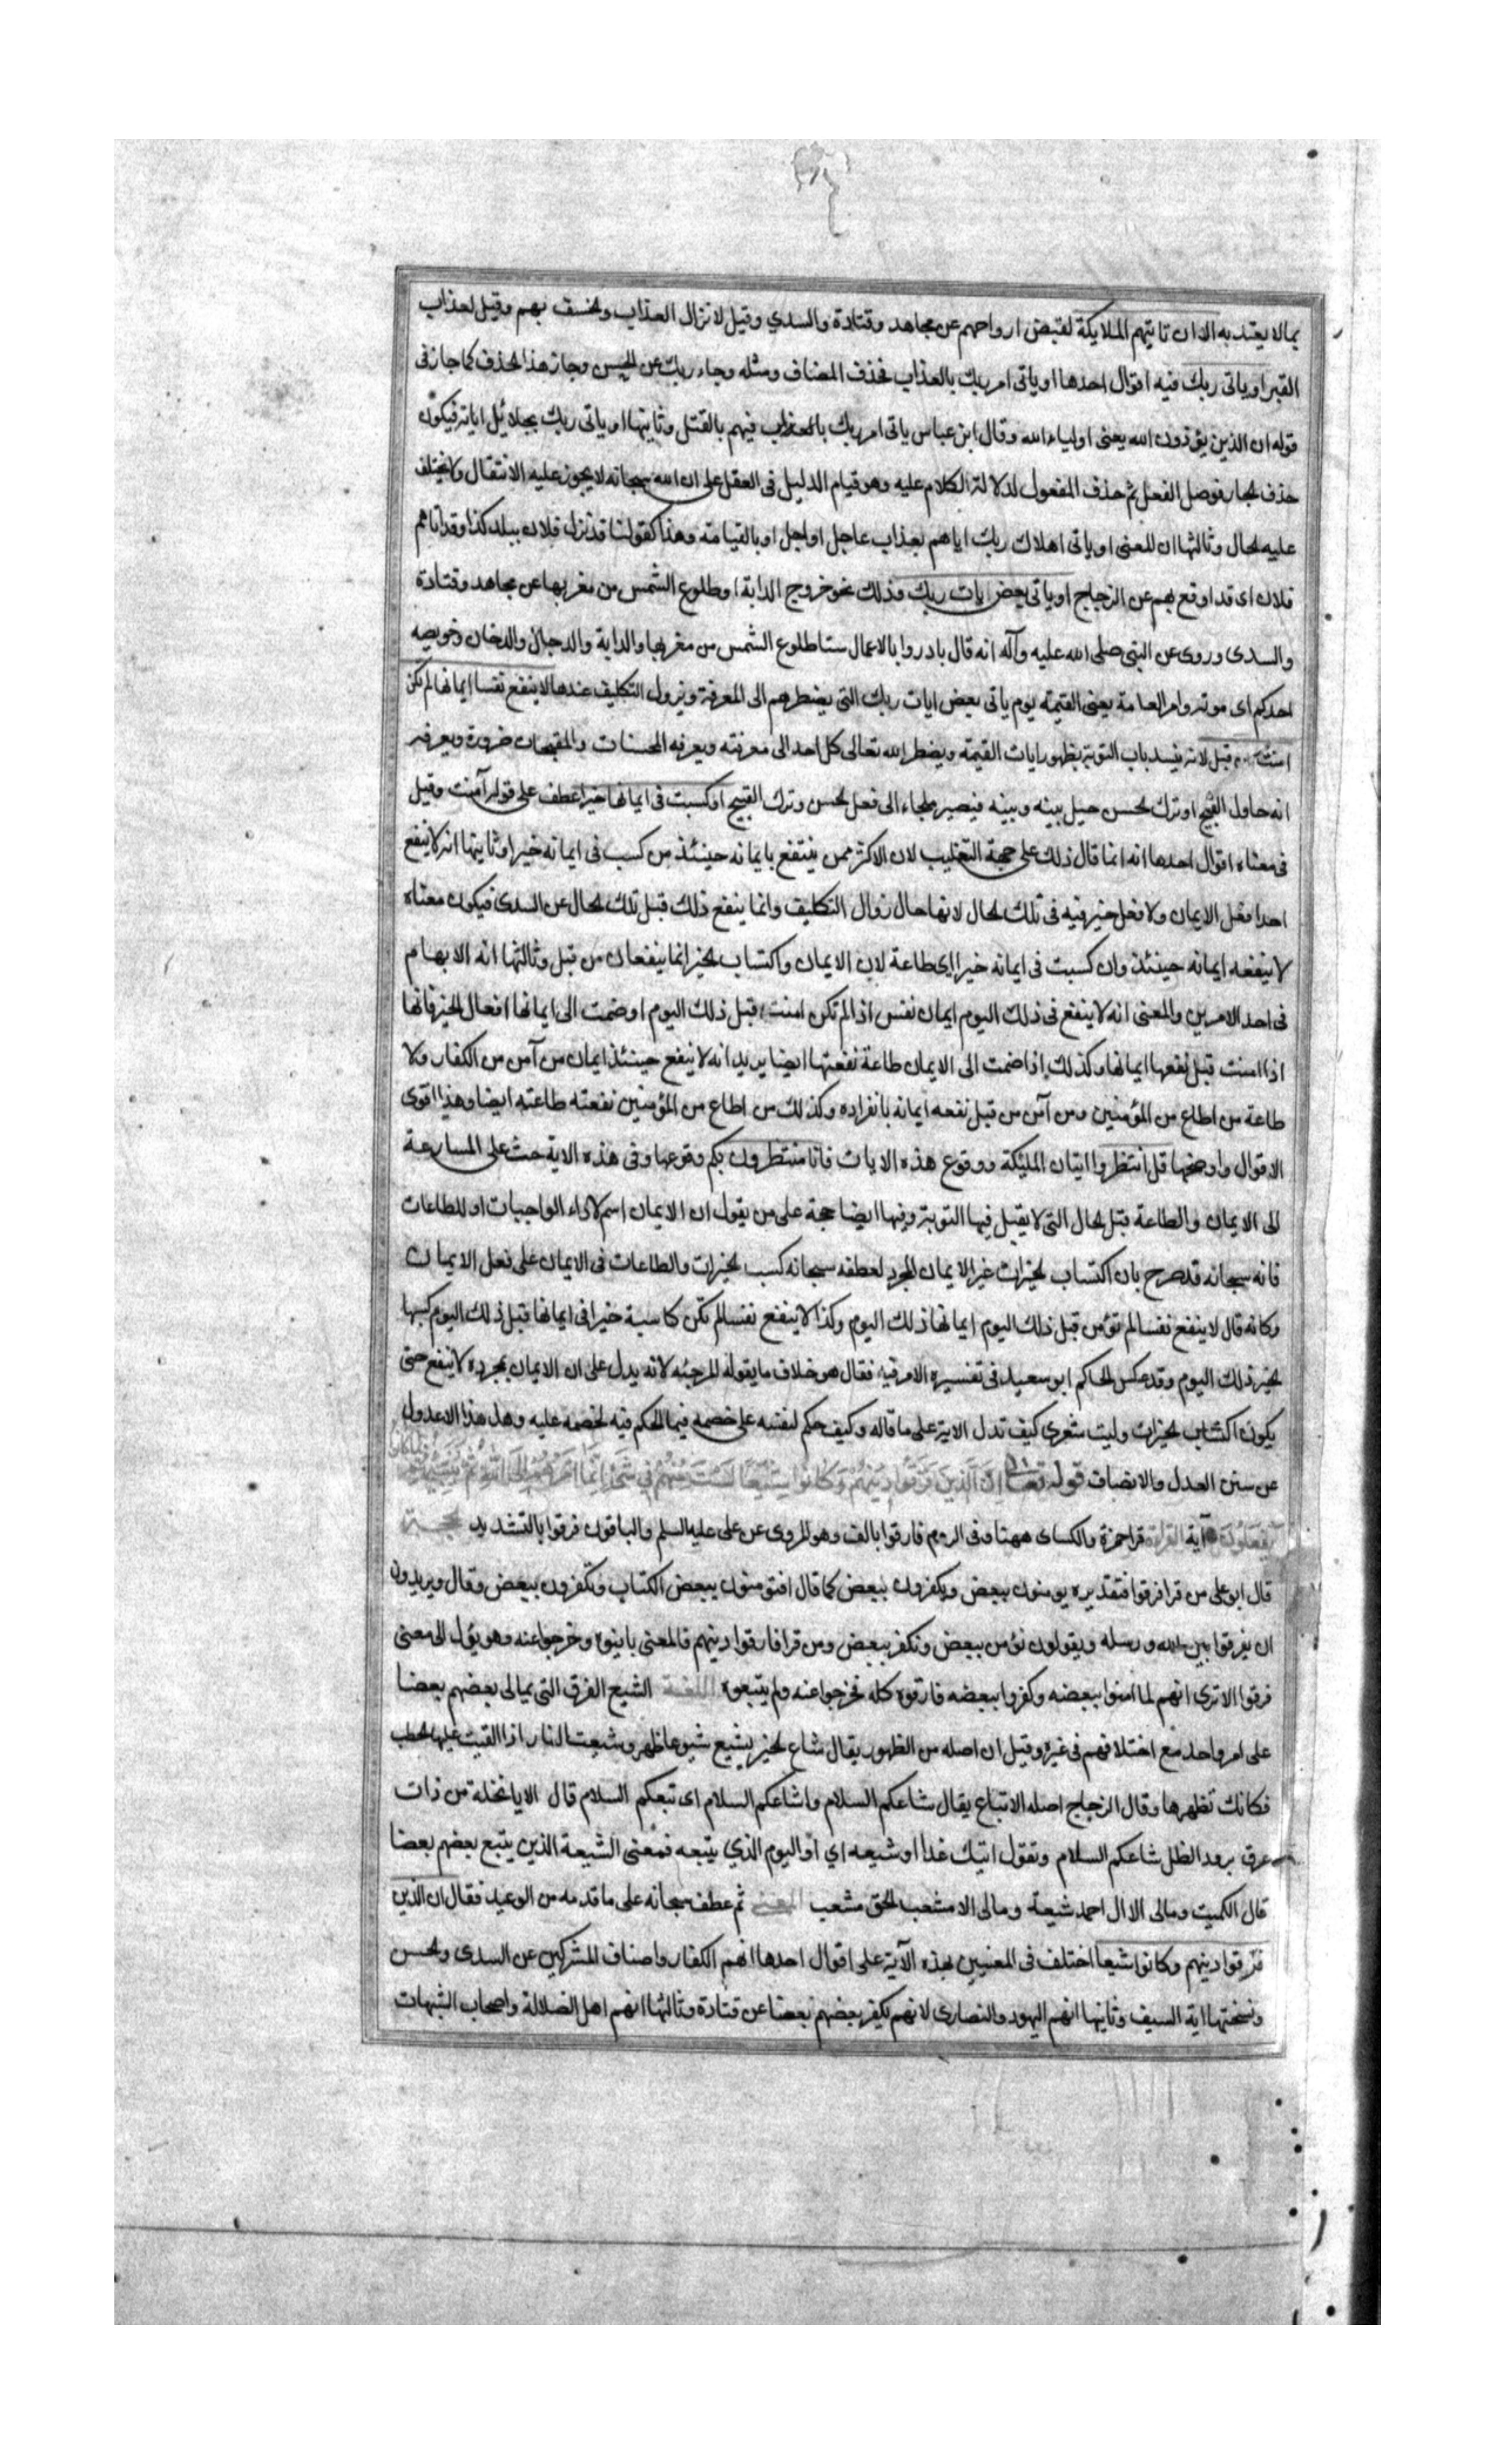 بما لا يعتد به الا ان تاتيهم الملايكة لقبض ارواحهم عن مجاهد وقتادة والسدي وقيل لانزال العذاب والخسف بهم وقيل لعذاب
القبر او ياتى ربك فيه اقوال احدها او ياتى امر ربك بالعذاب فحذف المضاف ومثله وجاء ربك عن الحسن وجاز هذا الحذف كما جاز فى
قوله ان الذين يؤذون الله يعنى اولياء الله وقال ابن عباس ياتى امر ربك بالعذاب فيهم بالقتل وثانيها او ياتى ربك بجلائل اياته فيكون
حذف الجار فوصل الفعل ثم حذف المفعول لدلالة الكلام عليه وهو قيام الدليل فى العقل على ان الله سبحانه لا يجوز عليه الانتقال ولا يختلف
عليه الحال وثالثها ان المعنى او ياتى اهلاك ربك اياهم بعذاب عاجل او اجل او بالقيامة وهذا كقولنا قد نزل فلان ببلد كذا وقد اتاهم
فلان اى قد اوقع بهم عن الزجاج او ياتى بعض ايات ربك وذلك نحو خروج الدابة او طلوع الشمس من مغربها عن مجاهد وقتادة
والسدى وروى عن النبى صلى الله عليه وآله انه قال بادروا بالاعمال ستا طلوع الشمس من مغربها والدابة والدجال والدخان وخويصه
احدكم اى موته وامر العامة يعنى القيمة يوم ياتى بعض ايات ربك التى يضطرهم الى المعرفة ويزول التكليف عندها لا ينفع نفسا ايمانها لم تكن
امنت من قبل لانه ينسد باب التوبة بظهور ايات القيمة ويضطر الله تعالى كل احد الى معرفته ويعرفه المحسنات والمقبحات ضرورة ويعرفه
انه حاول القبيح او ترك الحسن حيل بينه وبينه فيصير ملجاء الى فعل الحسن وترك القبيح او كسبت فى ايمانها خيرا عطف على قوله آمنت وقيل
فى معناه اقوال احدها انه انما قال ذلك على جهة التغليب لان الاكثر ممن ينتفع بايمانه حينئذ من كسب فى ايمانه خيرا وثانيها انه لا ينفع
احدا فعل الايمان ولا فعل خير فيه فى تلك الحال لانها حال زوال التكليف وانما ينفع ذلك قبل تلك الحال عن السدى فيكون معناه
لا ينفعه ايمانه حينئذ وان كسبت فى ايمانه خيرا اى طاعة لان الايمان واكتساب الخير انما ينفعان من قبل وثالثها انه الابهام
فى احد الامرين والمعنى انه لا ينفع فى ذلك اليوم ايمان نفس اذا لم تكن امنت قبل ذلك اليوم او ضمت الى ايمانها افعال الخير فانها
اذا امنت قبل نفعها ايمانها وكذلك اذا ضمت الى الايمان طاعة نفعتها ايضا يريد انه لا ينفع حينئذ ايمان من آمن من الكفار ولا
طاعة من اطاع من المؤمنين ومن آمن من قبل نفعه ايمانه بانفراده وكذلك من اطاع من المؤمنين نفعته طاعته ايضا وهذا اقوى
الاقوال واوضحها قل انتظروا اتيان الملئكة ووقوع هذه الايات فانا منتظرون بكم وقوعها وفى هذه الاية حث على المسارعة
الى الايمان والطاعة قبل الحال التى لا يقبل فيها التوبة وفيها ايضا حجة على من يقول ان الايمان اسم لاداء الواجبات او للطاعات
فانه سبحانه قد صرح بان اكتساب الخيرات غير الايمان المجرد لعطفه سبحانه كسب الخيرات والطاعات فى الايمان على فعل الايمان
وكانه قال لا ينفع نفسا لم تؤمن قبل ذلك اليوم ايمانها ذلك اليوم وكذا لا ينفع نفسا لم تكن كاسبة خيرا فى ايمانها قبل ذلك اليوم كسبها
الخير ذلك اليوم وقد عكس الحاكم ابو سعيد فى تفسيره الامر فيه فقال هو خلاف ما يقوله المرجئه لانه يدل على ان الايمان بمجرده لا ينفع حتى
يكون اكتساب الخيرات وليت شعرى كيف تدل الاية على ما قاله وكيف حكم لنفسه على خصمه فيما الحكم فيه لخصمه عليه وهل هذا الا عدول
عن سنن العدل والانصاف قوله تعالى اِنَّ الَّذينَ فَرَّقُوا دِينَهُمْ وَكَانُوا شِيَعًا لَسْتَ مِنْهُمْ فِي شَيْءٍ اِنَّمَا اَمْرُهُمْ اِلَى اللَّهِ ثُمَّ يُنَبِّئُهُمْ بِمَا كَانُوا
يَفْعَلُونَ آية القراءة قرا حمزة والكساى ههنا وفى الروم فارقوا بالف وهو المروى عن على عليه السلم والباقون فرقوا بالتشديد الحجـة
قال ابو على من قرا فرقوا فتقديره يومنون ببعض ويكفرون ببعض كما قال افتومنون ببعض الكتاب وتكفرون ببعض وقال ويريدون
ان يفرقوا بين الله ورسله ويقولون نؤمن ببعض ونكفر ببعض ومن قرا فارقوا دينهم فالمعنى باينوه وخرجوا عنه وهو يؤل الى معنى
فرقوا الا ترى انهم لما امنوا ببعضه وكفروا ببعضه فارقوه كله فخرجوا عنه ولم يتبعوه اللغـة الشيع الفرق التى يمالى بعضهم بعضا
على امر واحد مع اختلافهم فى غيره وقيل ان اصله من الظهور يقال شاع الخبر يشيع شيوعا ظهر وشيعت النار اذا القيت عليها الحطب
فكانك تظهرها وقال الزجاج اصله الاتباع يقال شاعكم السلام واشاعكم السلام اى تبعكم السلام قال الا يا نخلة من ذات
عرق برود الظل شاعكم السلام وتقول اتيك غدا او شيعه اي او اليوم الذي يتبعه فمعنى الشيعة الذين يتبع بعضهم بعضا
قال الكميت ومالى الا ال احمد شيعة ومالى الا مشعب الحق مشعب المعنى ثم عطف سبحانه على ما قدمه من الوعيد فقال ان الذين
فرقوا دينهم وكانوا شيعا اختلف فى المعنيين بهذه الآية على اقوال احدها انهم الكفار واصناف المشركين عن السدى والحسن
ونسختها اية السيف وثانيها انهم اليهود والنصارى لانهم يكفر بعضهم بعضا عن قتادة وثالثها انهم اهل الضلالة واصحاب الشبهات